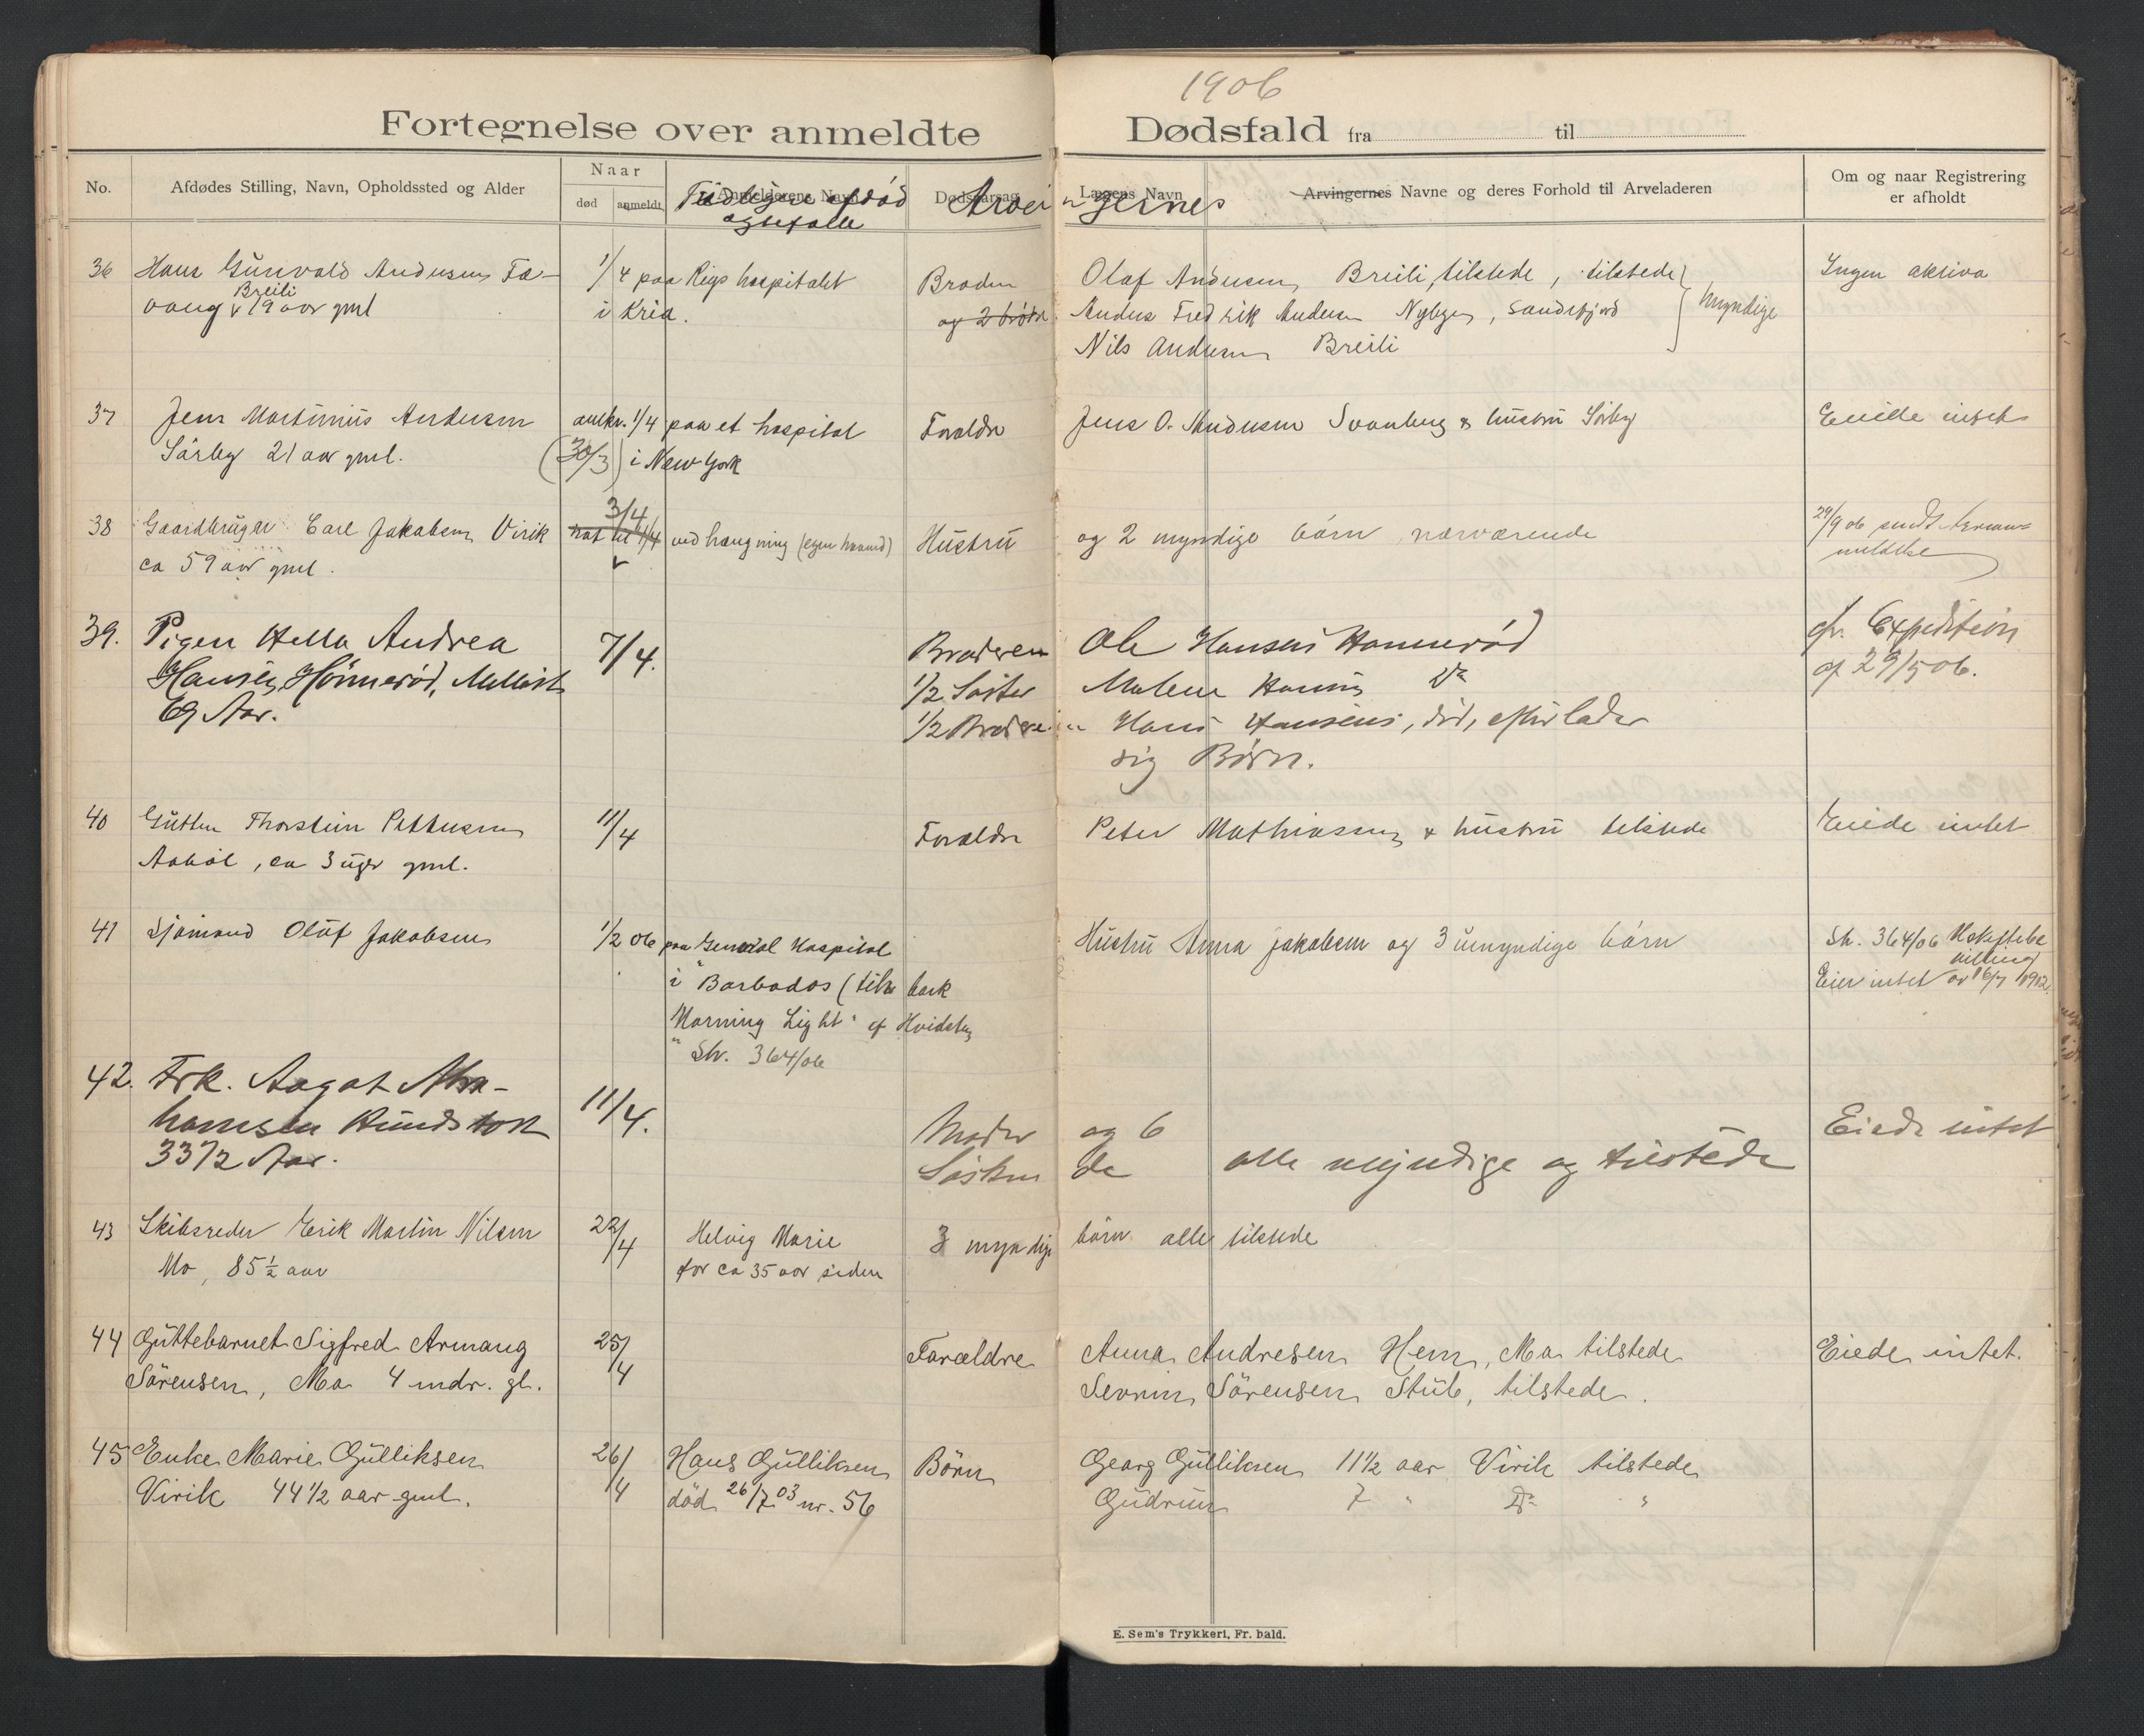 1906
Fortegnelse over anmeldte Dødsfald fra til
No. Afdødes Stilling, Navn, Opholdssted og Alder Naar død anmeldt Anmelderens Navn Dødsaarsag Lægens Navn Arvingernes Navne og deres Forhold til Arveladeren Om og naar Registrering er afholdt
Tidligere afdød Arvingernes
ægtefælle
36 Hans Gunvald Andersen Fe- 1/4 paa Rigshospitalet Broder Olaf Andersen, Breili, tilstede, tilstede Ingen aktiva
Breili
vang 19 aar gml i Kria. og 2 brødre Anders Fredrik Andersen Nybyen, Sandefjord myndige
Nils Andersen Breili
37 Jens Martinius Andersen antkv. 1/4 paa et hospital Forældre Jens O. Andersen Svanberg & hustru Sörby Eiede intet
Sörby 21 aar gml. (30/3) i New York
3/4
38 Gaardbruger Carl Jakobsen Virik nat til 4/4 ved hængning (egen haand) Hustru og 2 myndige börn nærværende 29/9 06 sendt
ca 59 aar gml.
39. Pigen Hella Andrea 7/4. Broderen Ole Hansen Hannerød cfr. Expedition
Hansen, Hönnerød, 1/2 Søster Malene Hansen Do af 29/5 06.
69 Aar. 1/2 Broderen Hans Hansens, död, efterlader
sig Børn.
40 Gutten Thorstein Pettersen 11/4 Forældre Peter Mathiassen & hustru tilstede Eiede intet
Aaböl, ca 3 uger gml.
41 Sjömand Oluf Jakobsen 1/2 06 paa General Hospital Hustru Anna Jakobsen og 3 umyndige börn Sk. 364/06
i Barbados (tilh bark Eier intet 16/7 1912.
"Morning Light" af Hvidsten
Skr. 364/06
42. Frk. Aagot Abra- 11/4. Moder og 6 Eiede intet
hamsen Rundstok Söskende alle myndige og tilstede
33 1/2 Aar.
43 Skibsreder Erik Martin Nilsen 22/4 Helvig Marie 3 myndige börn alle tilstede
Mo, 85 1/2 aar for ca 35 aar siden
44 Guttebarnet Sigfred Armang 25/4 Forældre Anna Andresen Hem, Mo tilstede Eiede intet.
Sörensen, Mo 4 mdr. gl. Severin Sörensen Stub, tilstede.
45 Enke Marie Gulliksen 26/4 Hans Gulliksen Börn Georg Gulliksen 11 1/2 aar Virik tilstede
Virik 44 1/2 aar gml. död 26/7 03 nr. 56 Gudrun 7 " Do "
E. Sem's Trykkeri, Fr. hald.